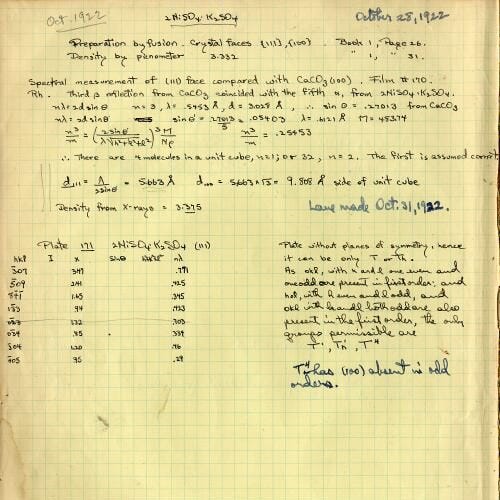 Oct. 1922
2NiSO4·K2SO4
October 28, 1922
Preparation by fusion. Crystal faces {111}, {100}. Book 1, Page 26.
Density by picnometer 3.332 " 1, " 31.
Spectral measurement of (111) face compared with CaCO3 (100). Film #170.
Rh. Third β reflection from CaCO3 coincided with the fifth from 2NiSO4·K2SO4.
nλ = 2d sinθ n = 3, λ = .5453 Å, d = 3.028 Å, ∴ sin θ = .27013 from CaCO3
nλ = 2d sinθ sin θ = .27013/5 = .05403 λ = .6121 Å M = 48374
n³/m = (2 sinθ/λ√h²+k²+l²)³ M/Nρ n³/m = .25453
∴ There are 4 molecules in a unit cube, n=1; or 32, n = 2. The first is assumed correct
d111 = λ/2sinθ = 5.663 Å d100 = 5.663 × √3 = 9.808 Å side of unit cube
Density from X-rays = 3.375
Laue made Oct. 31, 1922.
Plate 171 2NiSO4·K2SO4 (111)
hkl I x sinθ nλ
307 347 .771
509 241 .425
871 1.65 .345
153 94 .423
1.32 .303
45 .334
504 1.20 .46
705 95 .29
Plate without planes of symmetry, hence
it can be only T or Th.
As okl, with k and l one even and
one odd are present in first order; and
hol, with h even and l odd, and
okl with k and l both odd are also
present in the first order, the only
groups permissible are
T¹, Th¹, T⁴
T⁴ has (100) absent in odd
orders.